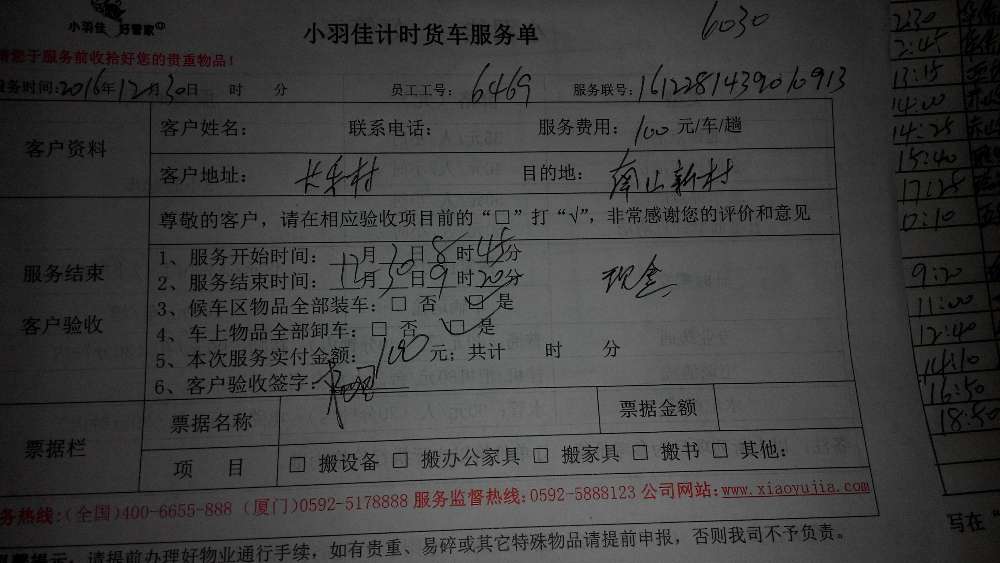 小羽佳 好管家
小羽佳计时货车服务单
6030
请您于服务前收拾好您的贵重物品！
服务时间:2016年12月30日 时 分 员工工号: 6469 服务联号: 1612281439010913
客户资料
客户姓名: 联系电话: 服务费用: 100 元/车/趟
客户地址: 长乐村 目的地: 南山新村
尊敬的客户，请在相应验收项目前的“□”打“√”，非常感谢您的评价和意见
服务结束
客户验收
1、服务开始时间: 12月3日8时45分
2、服务结束时间: 12月30日9时20分 现金
3、候车区物品全部装车: □ 否 □ 是
4、车上物品全部卸车: □ 否 □ 是
5、本次服务实付金额: 100元; 共计 时 分
6、客户验收签字:
票据栏
票据名称 票据金额
项 目 □ 搬设备 □ 搬办公家具 □ 搬家具 □ 搬书 □ 其他:
务热线:(全国)400-6655-888 (厦门)0592-5178888 服务监督热线:0592-5888123 公司网站:www.xiaoyujia.com
提示: 请提前办理好物业通行手续，如有贵重、易碎或其它特殊物品请提前申报，否则我司不予负责。
2:45
13:15
14:00
14:25
15:40
17:10
9:20
11:00
12:40
16:50
18:50
写在“